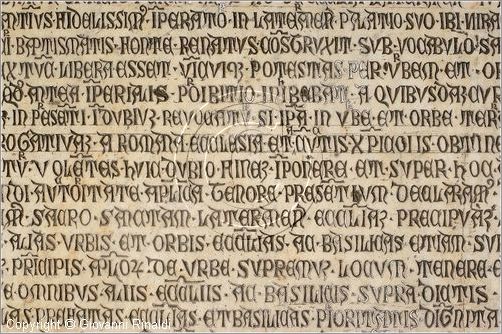 ANTIVS · FIDELISSIM · IPERATO · IN · LATERANEN · PALATIO · SVO · IBI · MIRA
I · BAPTISMATIS · FONTE · RENATVS · COSTRVXIT · SVB · VOCABVLO · S
TVC · LIBERA ESSET · VICVIQ · POTESTAS PER · VRBEM · ET · O
ANTEA · IPERIALIS · POIBITIO · INIBEBAT · A · QVIBVSDAZ
IN PESETI · I DVBIVZ · REVOCATV · SI · IPA · IN · VBE · ET · ORBE · TER
ROGATIVAZ · A ROMANA · ECCLESIA · ET · CVTIS · X PICOLIS · OBTINE
VOLETES · HVIC · DVBIO · FINEZ · IPONERE · ET · SVPER · HOC
DI · AVCTORITATE · APLICA · TENORE · PRESETIVM · DECLARAM
M · SACRO · SANCTAM · LATERANEN · ECCLIAZ · PRECIPVAZ
ALIAS · VRBIS · ET · ORBIS · ECCLIAS · AC · BASILICAS · ETIAM · SV
PRICIPIS · APLOZ · DE · VRBE · SVPREMVZ · LOCVM · TENERE
E · OMNIBVS · ALIIS · ECCLIIS · AC · BASILICIS · SVPRA · DICTIS
ECCLIAS · ET · BASILICAS PIORITATIS DIGNITA
Copyright © Giovanni Rinaldi